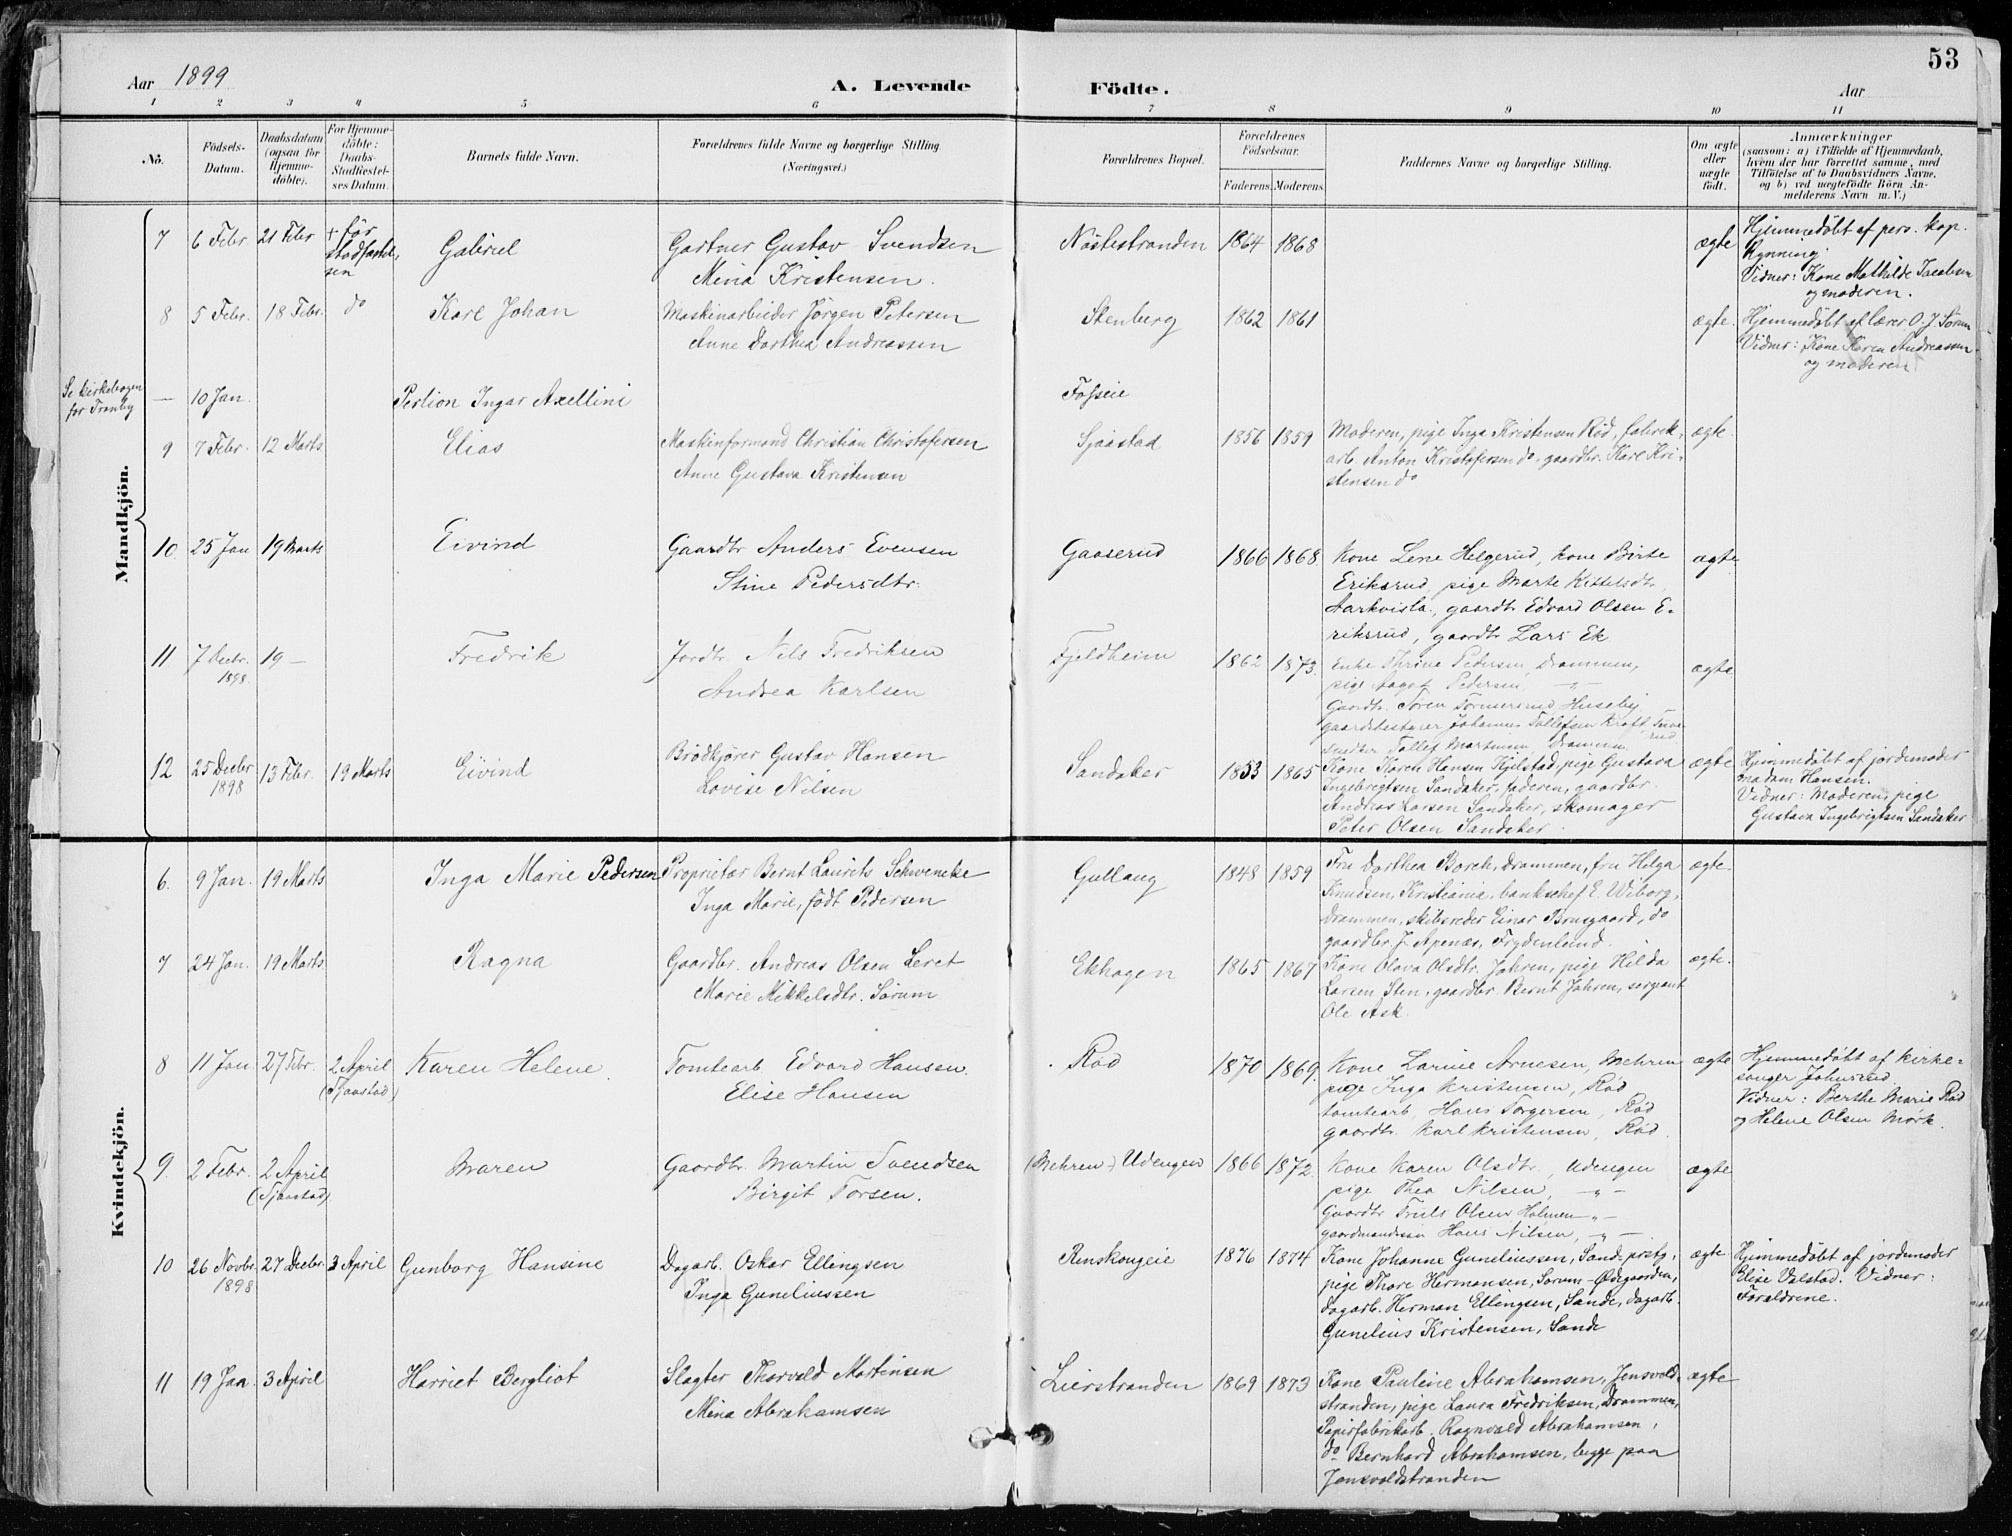 53
Aar 1899
A. Levende Födte.
Aar
1 2 3 4 5 6 7 8 9 10 11
No.
Födsels-Datum.
Daabsdatum (ogsaa for Hjemmedöbte).
For Hjemmedöbte: Daabs-Stadfæstelses Datum.
Barnets fulde Navn.
Forældrenes fulde Navne og borgerlige Stilling. (Næringsvei.)
Forældrenes Bopæl.
Forældrenes Födselsaar.
Faderens. Moderens.
Faddernes Navne og borgerlige Stilling.
Om ægte eller uægte födt.
Anmærkninger
(saasom: a) i Tilfælde af Hjemmedaab,
hvem der har forrettet samme, med
Tilföielse af to Daabsvidners Navne,
og b) ved uægtefödte Börn Anmelderens Navn m. V.)
Mandkjön.
7 6 Febr. 21 Febr + før stadfæstelsen Gabriel Gartner Gustav Svendsen Nøstestranden 1864 1868 ægte Hjemmedøbt af pers. kap.
Mina Kristensen. Rynning
Vidner: Kone Mathilde Jacobsen
og moderen.
8 5 Febr. 18 Febr. do Karl Johan Maskinarbeider Jørgen Petersen Stenberg 1862 1861 ægte. Hjemmedøbt af lærer O. J. Sørum
Anne Dorthea Andreassen Vidner: Kone Karen Andreassen
og moderen
Se kirkebogen for Tranby — 10 Jan. Perlion Ingar Axellini Fosseie
9 7 Febr. 12 Marts Elias Maskinformand Christian Christofersen Sjaastad 1856 1859 Moderen, pige Inga Kristensen Rød, fabrik- ægte.
Anne Gustava Kristensen arb. Anton Kristofersen do, gaardbr. Karl Kri-
stensen do
10 25 Jan 19 Marts Eivind Gaardbr Anders Evensen Gaaserud 1866 1868 Kone Lene Helgerud, kone Birte ægte
Stine Pedersdtr. Eriksrud, pige Marte Kittelsdtr
Aarkvisla, gaardbr Edvard Olsen E-
riksrud, gaardbr Lars Ek
11 7 Decbr. 1898. 19 — Fredrik Jordbr. Nils Fredriksen Fjeldheim 1862 1873. Enke Thrine Pedersen, Drammen, ægte
Andrea Karlsen pige Aagot Pedersen, — " —
Gaardbr. Søren Huseby
gaardbestyrer Johannes Tollefsen Kraft,
Tollef Martinsen, Drammen.
12 25 Decbr 1898 13 Febr. 19 Marts Eivind Brødkjører Gustav Hansen Sandaker 1853 1865 Kone Karen Hansen Kjelstad, pige Gustava ægte Hjemmedøbt af jordemoder
Lovise Nilsen Ingebrigtsen Sandaker, faderen, gaardbr. madam Hansen.
Andreas Larsen Sandaker, skomager Vidner: Moderen, pige
Peter Olsen Sandaker. Gustava Ingebrigtsen Sandaker
Kvindekjön.
6. 9 Jan. 19 Marts Inga Marie Pedersen Proprietær Bernt Laurits Schwencke Gullaug 1848 1859 Fru Dorthea Borch, Drammen, fru Helga ægte.
Inga Marie, født Pedersen Knudsen, Kristiania, bankchef E. Wiborg,
Drammen, skibsreder Einar Brusgaard, do
gaardbr. J. Apenæs, Frydenlund.
7 24 Jan. 19 Marts Ragna Gaardbr. Andreas Olsen Leret Ekhagen 1865 1867 Kone Olava Olsdtr. Jahren, pige Hilda ægte.
Marie Mikkelsdtr. Sørum Larsen Sten, gaardbr. Bernt Jahren, sergeant
Ole Ask.
8 11 Jan 27 Febr. 2 April (Sjaastad) Karen Helene. Tomtearb Edvard Hansen. Rød 1870 1869. Kone Larine Arnesen, Mehren ægte Hjemmedøbt af kirke-
Elise Hansen pige Inga Kristensen, Rød sanger Johnsrud.
tomtearb. Hans Torgersen, Rød Vidner: Berthe Marie Rød
gaardbr. Karl Kristensen, Rød. og Helene Olsen Mørk.
9. 2 Febr. 2 April (Sjaastad) Maren Gaardbr. Martin Svendsen (Mehren-) Udengen 1866 1872. Kone Karen Olsdtr., Udengen ægte
Birgit Torsen. pige Thea Nilsen, — " —
Gaardbr Truls Olsen Holmen — " —
gaardmandssøn Hans Nilsen, — " —.
10 26 Novbr. 1898 27 Decbr. 3 April Gunborg Hansine Dagarb. Oskar Ellingsen Renskougeie 1876 1874 Kone Johanne Guneliussen, Sande prstg., ægte. Hjemmedøbt af jordemoder
Inga Guneliussen pige Thore Hermansen, Sørum-Ødegaarden, Elise Valstad. Vidner:
dagarb. Herman Ellingsen, Sande, dagarb. Forældrene.
Gunelius Kristensen, Sande
11 19 Jan 3 April Harriet Bergliot Slagter Thorvald Martinsen Lierstranden 1869 1873 Kone Pauline Abrahamsen, Jensvold- ægte
Mina Abrahamsen stranden, pige Laura Fredriksen, Drammen,
Papirfabrikarb. Ragnvald Abrahamsen,
do Bernhard Abrahamsen, begge paa
Jensvoldstranden